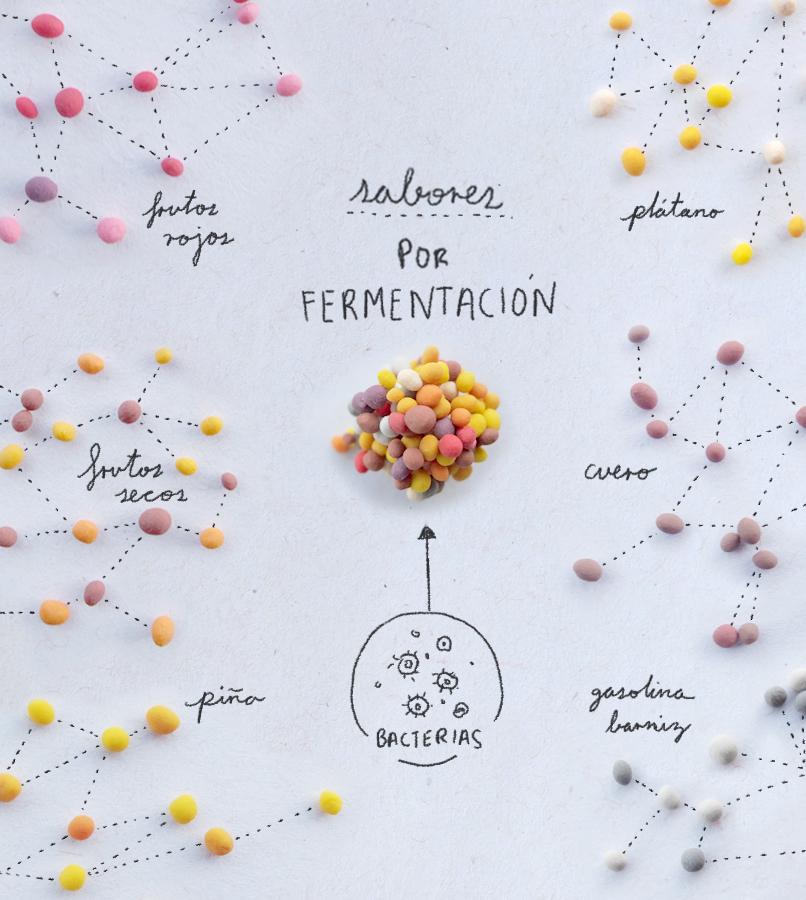 sabores
POR
FERMENTACIÓN
frutos
rojos
plátano
frutos
secos
cuero
piña
gasolina
barniz
BACTERIAS